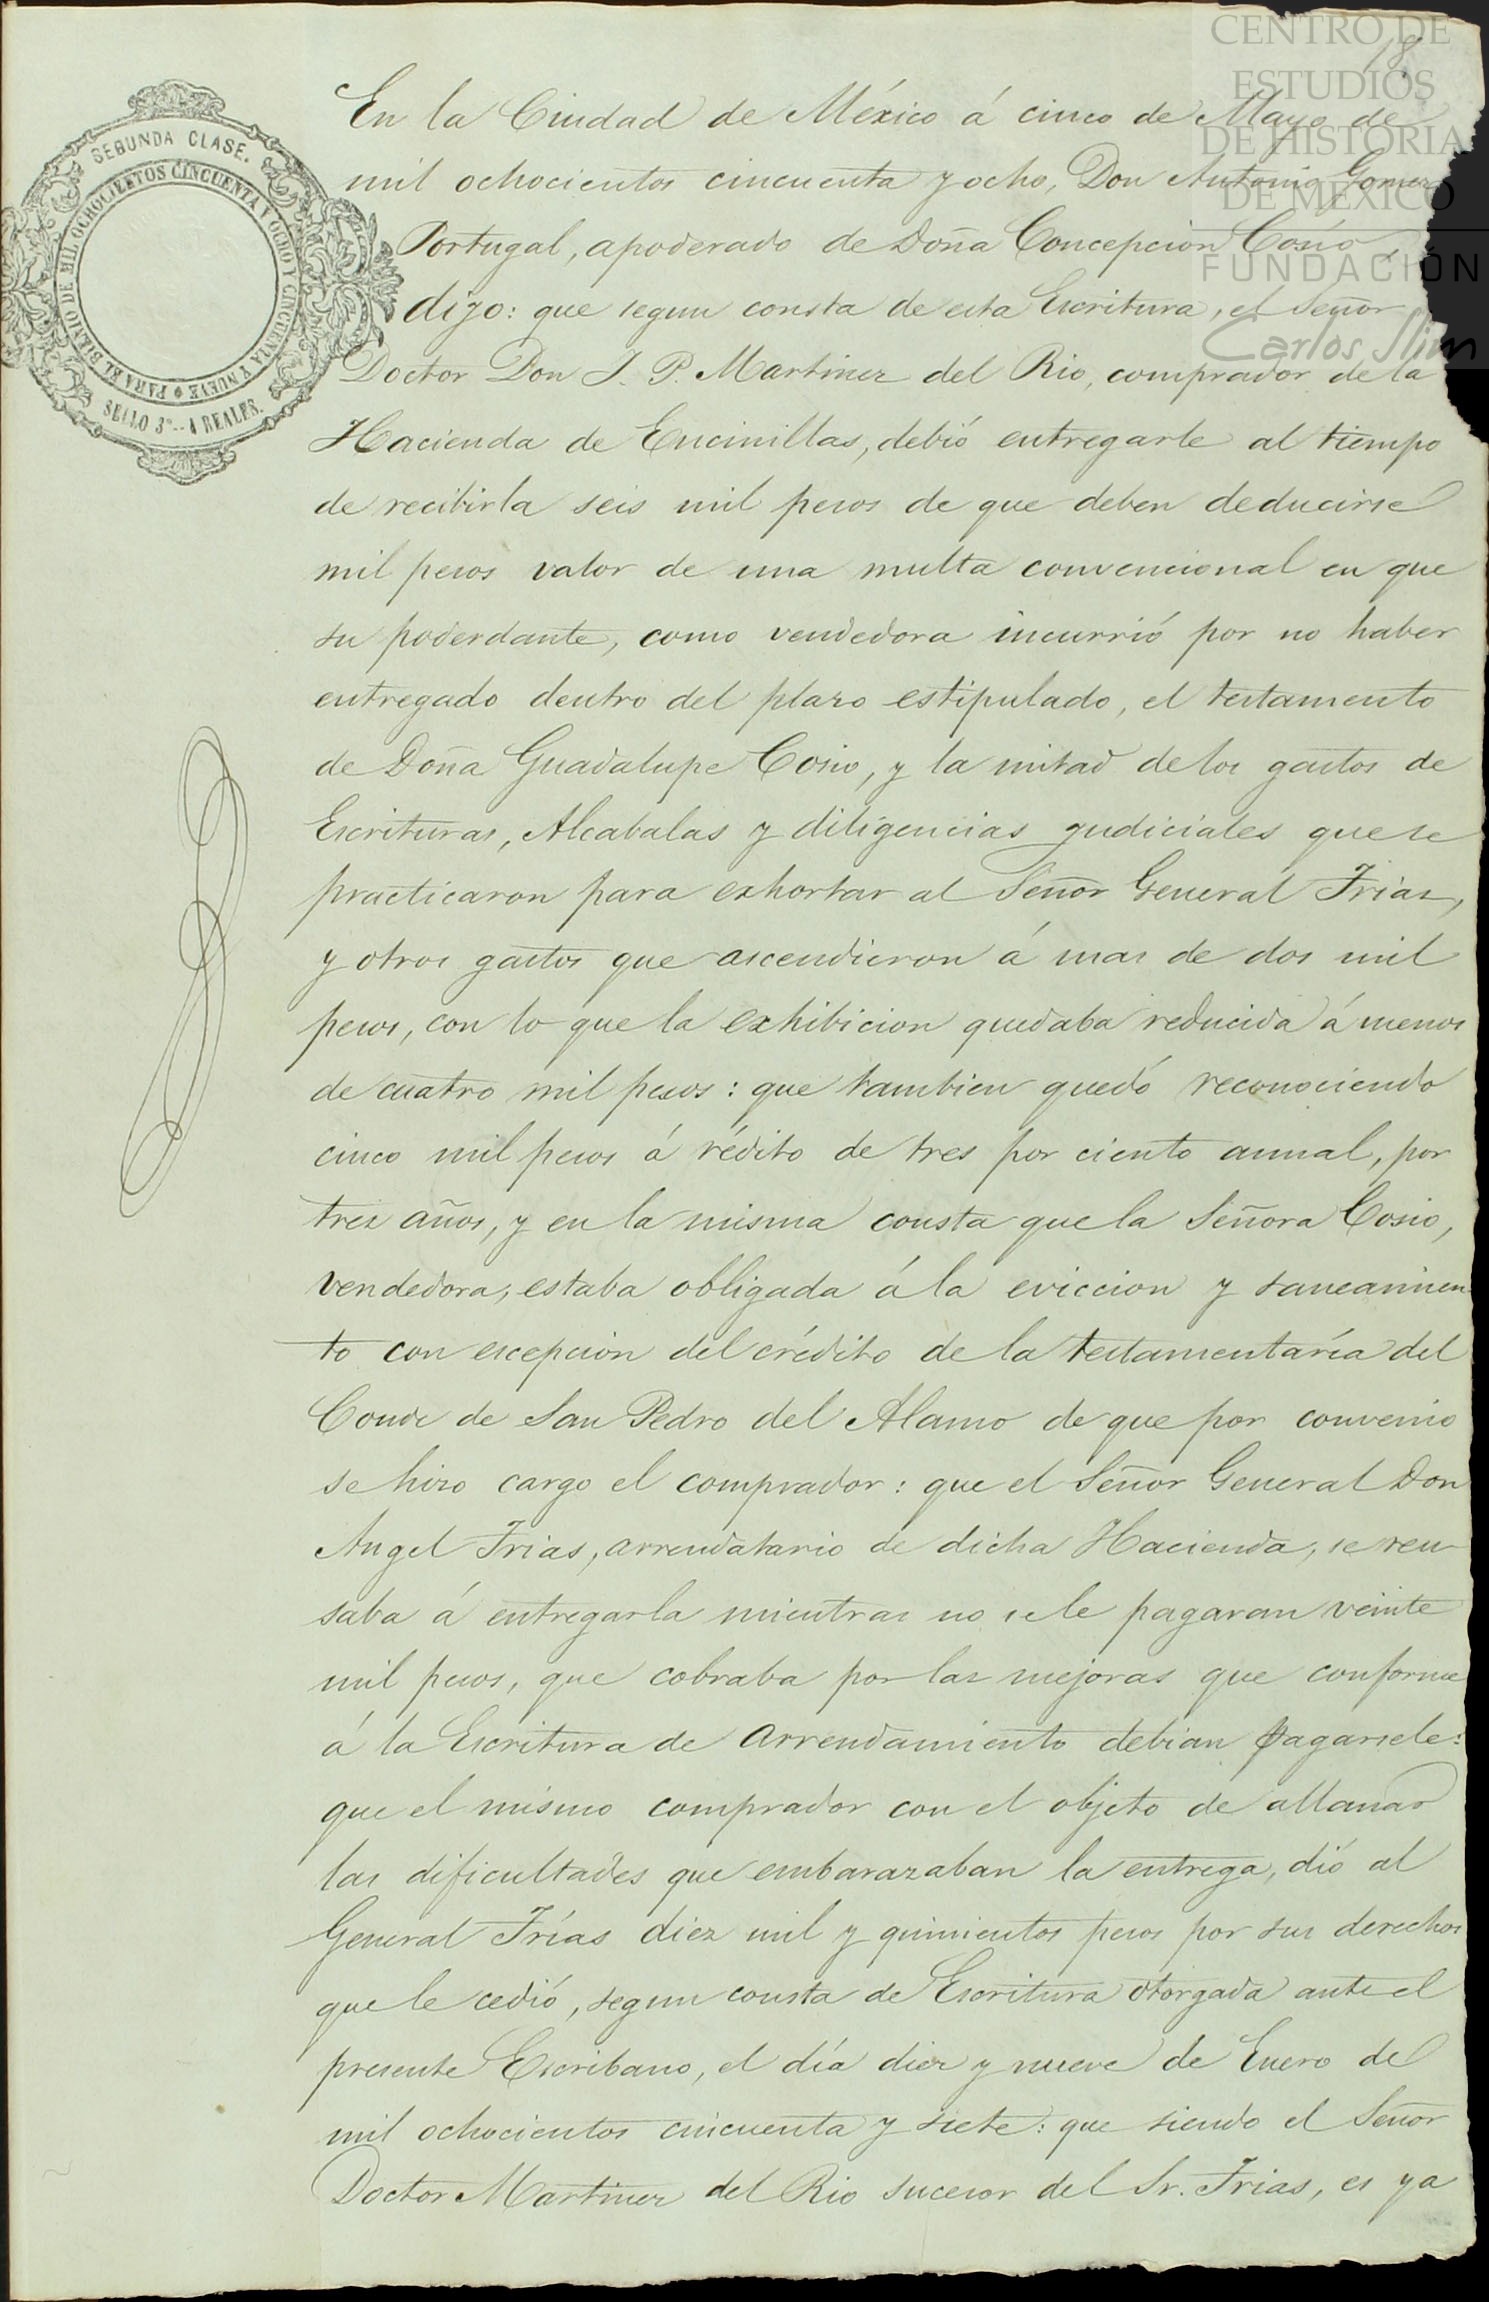 CENTRO DE
ESTUDIOS
DE HISTORIA
DE MÉXICO
FUNDACIÓN
Carlos Slim
18
SEGUNDA CLASE.
PARA EL BIENIO DE MIL OCHOCIENTOS CINCUENTA Y OCHO Y CINCUENTA Y NUEVE
SELLO 3º -- 4 REALES.
En la Ciudad de México á cinco de Mayo de
mil ochocientos cincuenta y ocho, Don Antonio Gomez
Portugal, apoderado de Doña Concepcion Cosío,
dijo: que segun consta de esta Escritura, el Señor
Doctor Don J. P. Martinez del Rio, comprador de la
Hacienda de Encinillas, debió entregarle al tiempo
de recibirla seis mil pesos de que deben deducirse
mil pesos valor de una multa convencional en que
su poderdante, como vendedora incurrió por no haber
entregado dentro del plazo estipulado, el testamento
de Doña Guadalupe Cosio, y la mitad de los gastos de
Escrituras, Alcabalas y diligencias judiciales que se
practicaron para exhortar al Señor General Frias,
y otros gastos que ascendieron á mas de dos mil
pesos, con lo que la exhibicion quedaba reducida á menos
de cuatro mil pesos: que tambien quedó reconociendo
cinco mil pesos á rédito de tres por ciento anual, por
tres años, y en la misma consta que la Señora Cosio,
vendedora, estaba obligada á la eviccion y saneamien
to con escepcion del crédito de la testamentaría del
Conde de San Pedro del Alamo de que por convenio
se hizo cargo el comprador: que el Señor General Don
Angel Frias, arrendatario de dicha Hacienda, se reu
saba á entregarla mientras no se le pagaran veinte
mil pesos, que cobraba por las mejoras que conforme
á la Escritura de Arrendamiento debian pagarsele:
que el mismo comprador con el objeto de allanar
las dificultades que embarazaban la entrega, dió al
General Frías diez mil y quinientos pesos por sus derechos
que le cedió, segun consta de Escritura otorgada ante el
presente Escribano, el día diez y nueve de Enero de
mil ochocientos cincuenta y siete: que siendo el Señor
Doctor Martinez del Rio sucesor del Sr. Frias, es ya